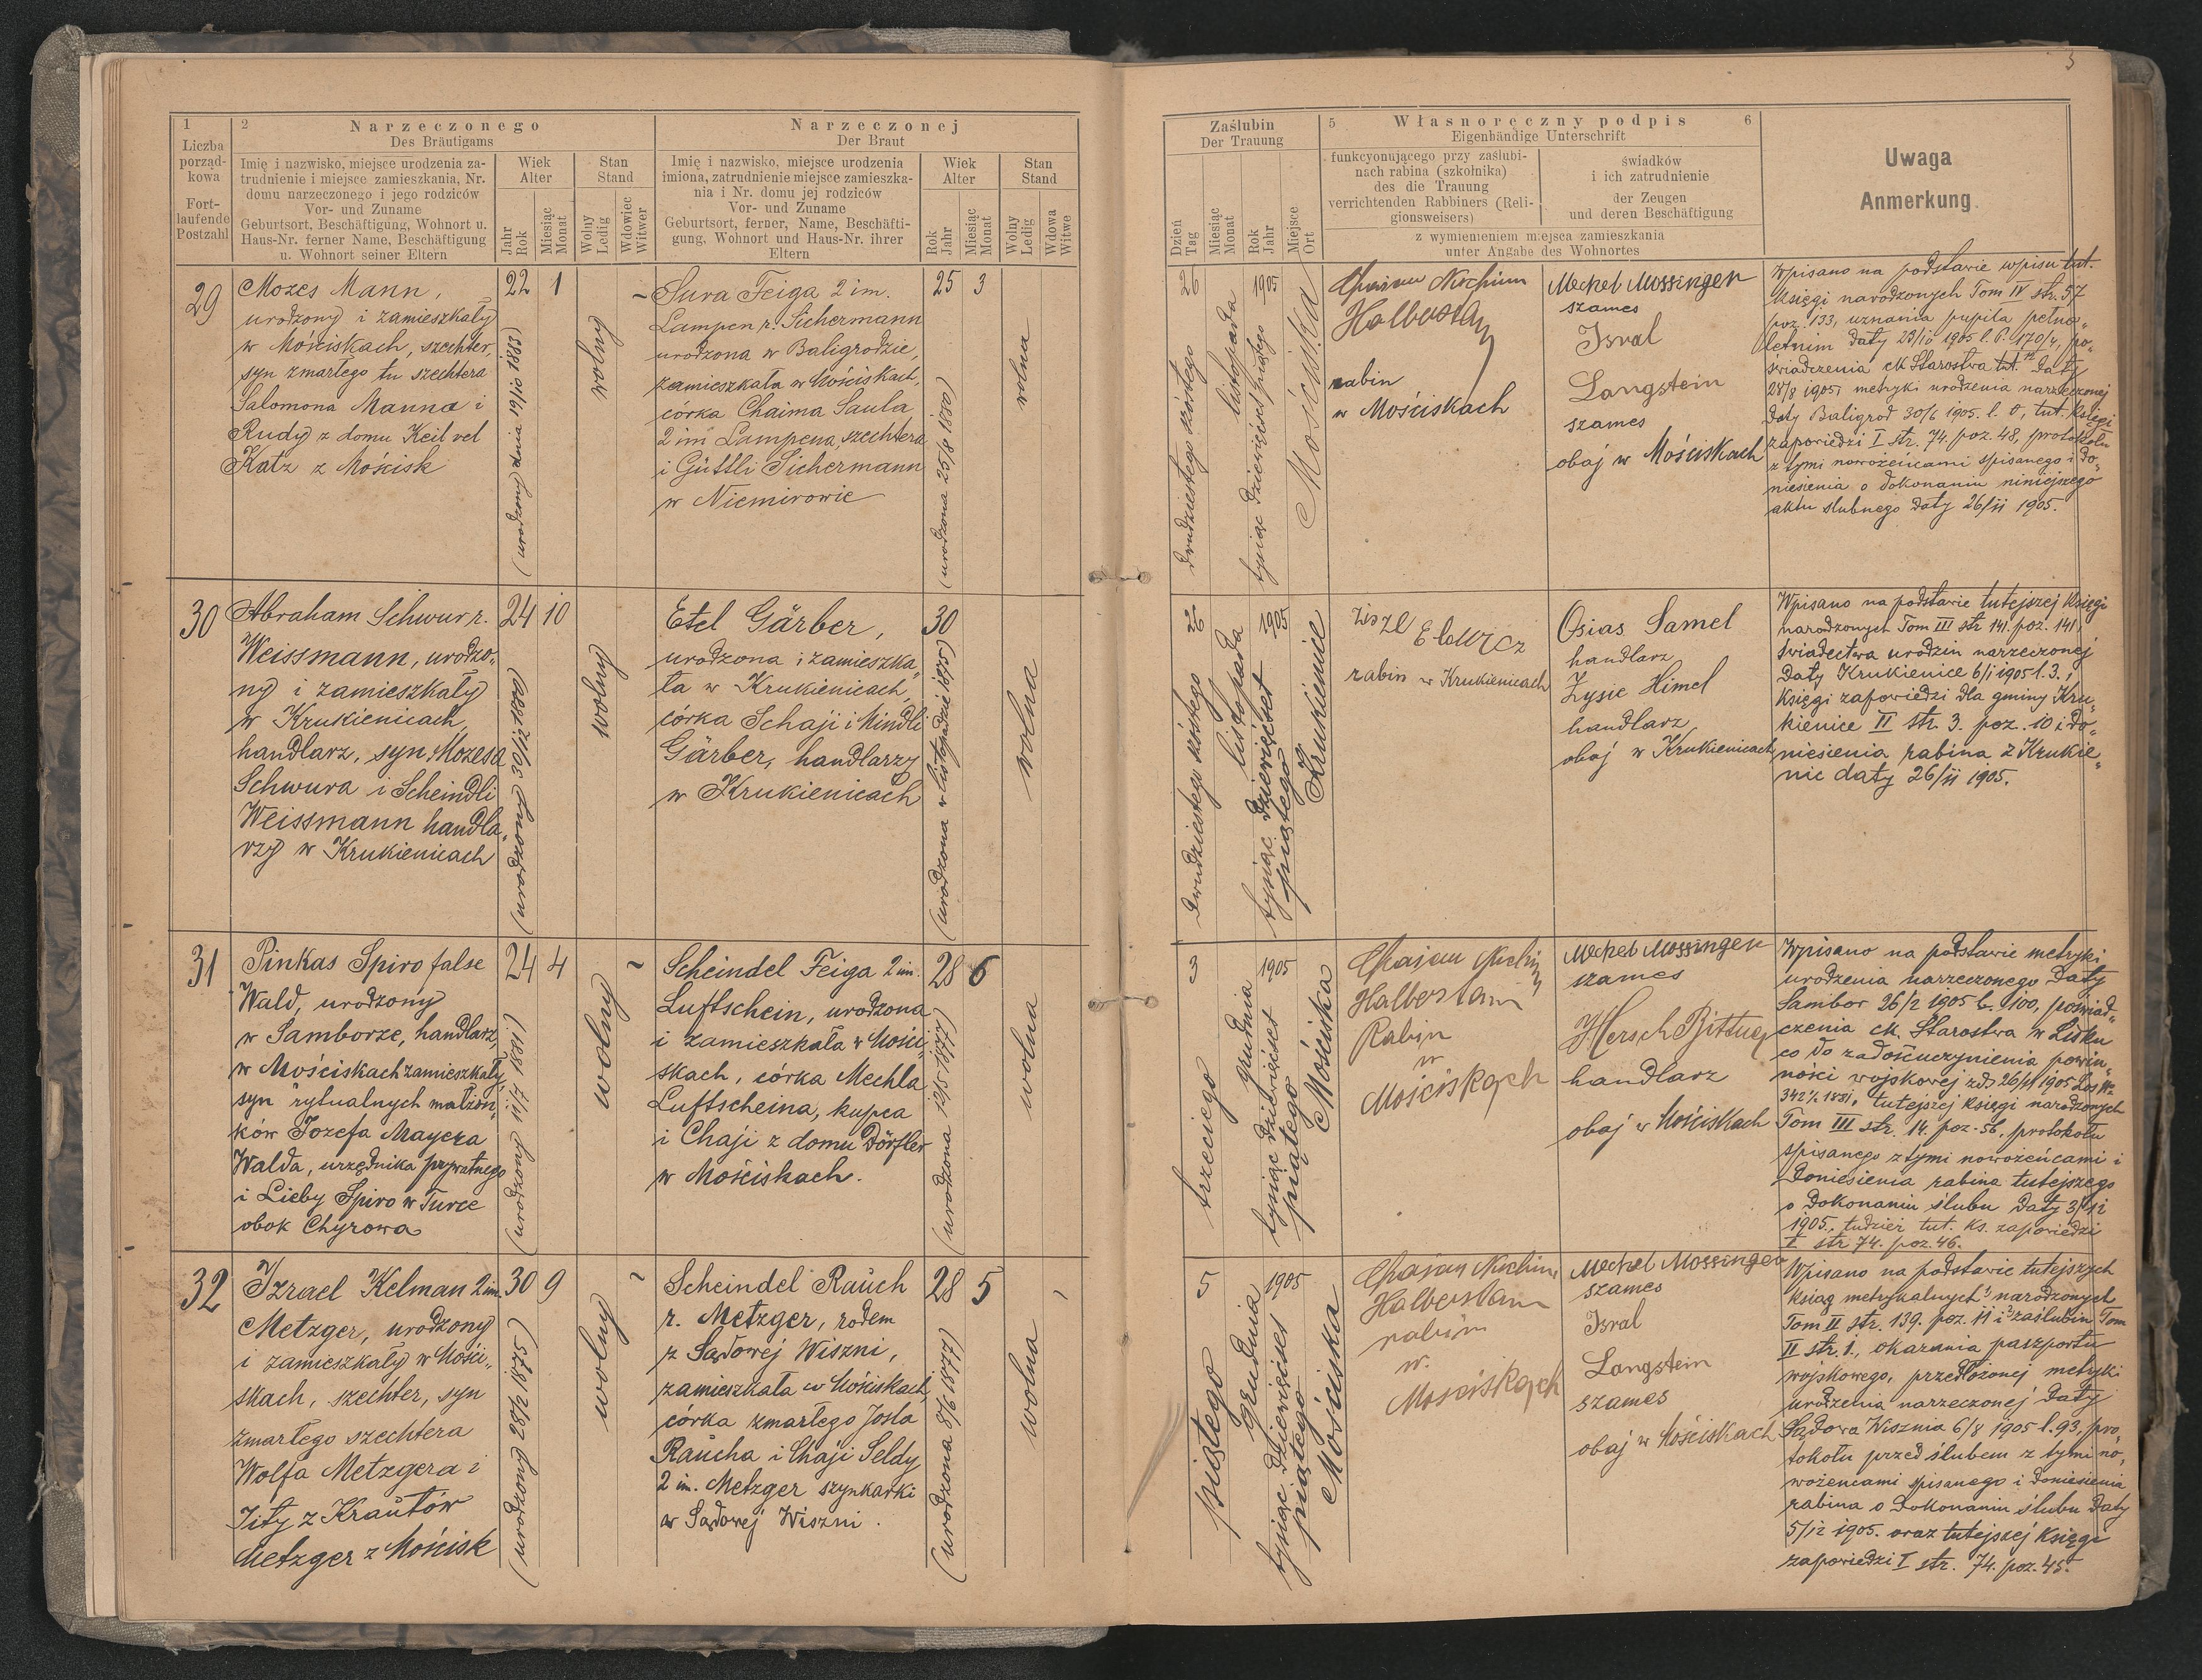 3
1
Liczba
porząd-
kowa
Fort-
laufende
Postzahl
2
Narzeczonego
Des Bräutigams
Imię i nazwisko, miejsce urodzenia za-
trudnienie i miejsce zamieszkania, Nr.
domu narzeczonego i jego rodziców
Vor- und Zuname
Geburtsort, Beschäftigung, Wohnort u.
Haus-Nr. ferner Name, Beschäftigung
u. Wohnort seiner Eltern
Wiek
Alter
Jahr
Rok
Miesiąc
Monat
Stan
Stand
Wolny
Ledig
Wdowiec
Witwer
Narzeczonej
Der Braut
Imię i nazwisko, miejsce urodzenia
imiona, zatrudnienie miejsce zamieszka-
nia i Nr. domu jej rodziców
Vor- und Zuname
Geburtsort, ferner, Name, Beschäfti-
gung, Wohnort und Haus-Nr. ihrer
Eltern
Wiek
Alter
Rok
Jahr
Miesiąc
Monat
Stan
Stand
Wolny
Ledig
Wdowa
Witwe
Zaślubin
Der Trauung
Dzień
Tag
Miesiąc
Monat
Rok
Jahr
Miejsce
Ort
5
Własnoręczny podpis
6
Eigenhändige Unterschrift
funkcyonującego przy zaślubi-
nach rabina (szkolnika)
des die Trauung
verrichtenden Rabbiners (Reli-
gionsweisers)
świadków
i ich zatrudnienie
der Zeugen
und deren Beschäftigung
z wymienieniem miejsca zamieszkania
unter Angabe des Wohnortes
Uwaga
Anmerkung
29
Mozes Mann,
urodzony i zamieszkały
w Mościskach, szechter,
syn zmarłego tu szechtera
Salomona Manna i
Rudy z domu Keil vel
Katz z Mościsk
22 1
(urodzony dnia 19/10 1883)
wolny
Sura Feiga 2 im.
Lampen r. Sichermann
urodzona w Baligrodzie,
zamieszkała w Mościskach,
córka Chaima Saula
2 im Lampena, szechtera
i Güttli Sichermann
w Niemirowie
25 3
(urodzona 25/8 1880)
wolna
26
dwudziestego szóstego
listopada
1905
tysiąc dziewięćset piątego
Mościska
Chaim Nochim
Halberstam
rabin
w Mościskach
Mechel Mossinger
szames
Isral
Langstein
szames
obaj w Mościskach
Wpisano na podstawie wpisu tut.
Księgi narodzonych Tom IV str. 57
poz. 133, uznania pupila pełno„
letnim daty 23/10 1905 l. P. 170/4, po„
świadczenia ck Starostwa tut. daty
28/8 1905, metryki urodzenia narzeczonej
daty Baligrod 30/6 1905. l. 0, tut. Księgi
zapowiedzi I str. 74. poz. 48, protokołu
z tymi nowożeńcami spisanego i do„
niesienia o dokonaniu niniejszego
aktu ślubnego daty 26/11 1905.
30
Abraham Schwur r.
Weissmann, urodzo„
ny i zamieszkały
w Krukienicach,
handlarz, syn Mozesa
Schwura i Scheindli
Weissmann handla„
rzy w Krukienicach
24 10
(urodzony 30/12 1880)
wolny
Etel Gärber,
urodzona i zamieszka„
ła w Krukienicach,
córka Schaji i Mindli
Gärber, handlarzy
w Krukienicach
30
(urodzona w listopadzie 1875)
wolna
26
dwudziestego szóstego
listopada
1905
tysiąc dziewięćset
piątego
Krukienice
Elowicz
rabin w Krukienicach
Osias Samel
handlarz
Zysie Himel
handlarz
obaj w Krukienicach
Wpisano na podstawie tutejszej Księgi
narodzonych Tom III str 141. poz. 141,
świadectwa urodzin narzeczonej
daty Krukienice 6/1 1905 l. 3.,
Księgi zapowiedzi dla gminy Kru„
kienice II str. 3. poz. 10 i do„
niesienia rabina z Krukie„
nic daty 26/11 1905.
31
Pinkas Spiro false
Wald, urodzony
w Samborze, handlarz,
w Mościskach zamieszkały,
syn rytualnych małżon„
ków Jozefa Mayera
Walda, urzędnika prywatnego
i Lieby Spiro w Turce
obok Chyrowa
24 4
(urodzony 11/7 1881)
wolny
Scheindel Feiga 2 im.
Luftschein, urodzona
i zamieszkała w Mości„
skach, córka Mechla
Luftscheina, kupca
i Chaji z domu Dörfler
w Mościskach.
28 6
(urodzona 12/5 1877)
wolna
3
trzeciego
grudnia
1905
tysiąc dziewięćset
piątego
Mościska
Halberstam
Rabin
w
Mościskach
Mechel Mossinger
szames
Hersch Bittner
handlarz
obaj w Mościskach
Wpisano na podstawie metryki
urodzenia narzeczonego daty
Sambor 26/2 1905 l. 100, poświad„
czenia ck. Starostwa w Lisku
co do zadośćuczynienia powin„
ności wojskowej zdo 26/11 1905
1881, tutejszej Księgi narodzonych
Tom III str. 14. poz. 56, protokołu
spisanego z tymi nowożeńcami i
doniesienia rabina tutejszego
o dokonaniu ślubu daty 3/12
1905, tudzież tut. ks. zapowiedzi
I str 74. poz. 46.
32
Izrael Kelman 2 im.
Metzger, urodzony
i zamieszkały w Mości„
skach, szechter, syn
zmarłego szechtera
Wolfa Metzgera i
Jity z Krautów
Metzger z Mościsk
30 9
(urodzony 28/2 1875)
wolny
Scheindel Rauch
r. Metzger, rodem
z Sądowej Wiszni,
zamieszkała w Mościskach,
córka zmarłego Josla
Raucha i Chaji Seldy
2 im. Metzger szynkarki
w Sądowej Wiszni.
28 5
(urodzona 8/6 1877)
wolna
5
piątego
grudnia
1905
tysiąc dziewięćset
piątego
Mościska
Halberstam
rabin
w.
Mościskach
Mechel Mossinger
szames
Isral
Langstein
szames
obaj w Mościskach
Wpisano na podstawie tutejszych
ksiąg metrykalnych narodzonych
Tom II str. 139. poz. 11 i zaślubin Tom
II str. 1., okazania paszportu
wojskowego, przedłożonej metryki
urodzenia narzeczonej daty
Sądowa Wisznia 6/8 1905 l. 93, pro„
tokołu przed ślubem z tymi no„
wożeńcami spisanego i doniesienia
rabina o dokonaniu ślubu daty
5/12 1905. oraz tutejszej Księgi
zapowiedzi I str. 74. poz. 45.